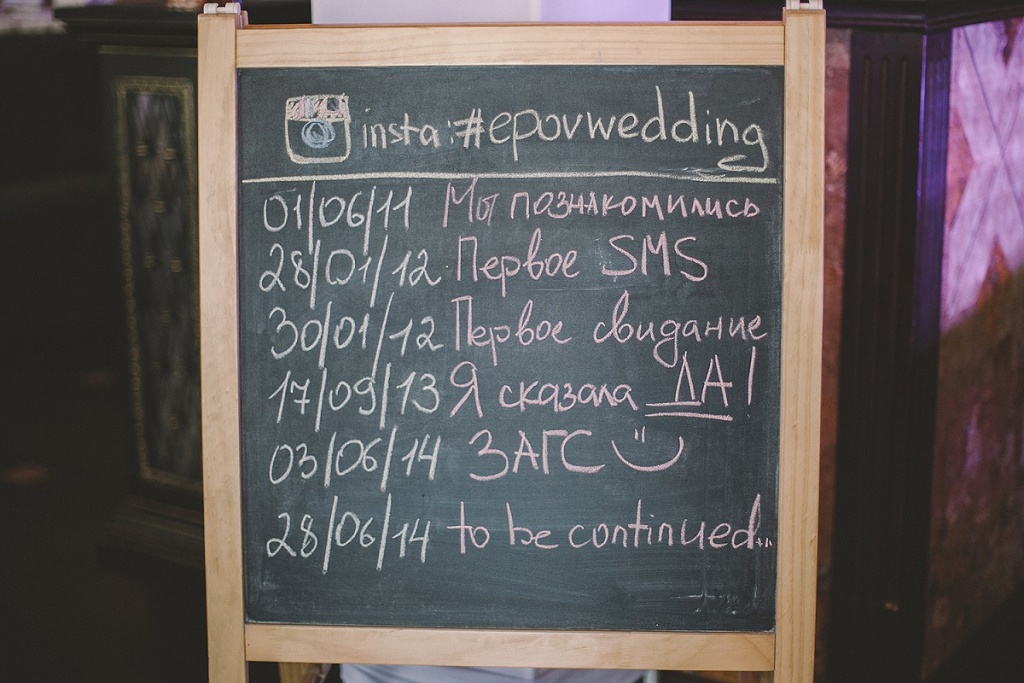 insta: #epovwedding
01/06/11 Мы познакомились
28/01/12 Первое SMS
30/01/12 Первое свидание
17/09/13 Я сказала ДА!
03/06/14 ЗАГС
28/06/14 to be continued...